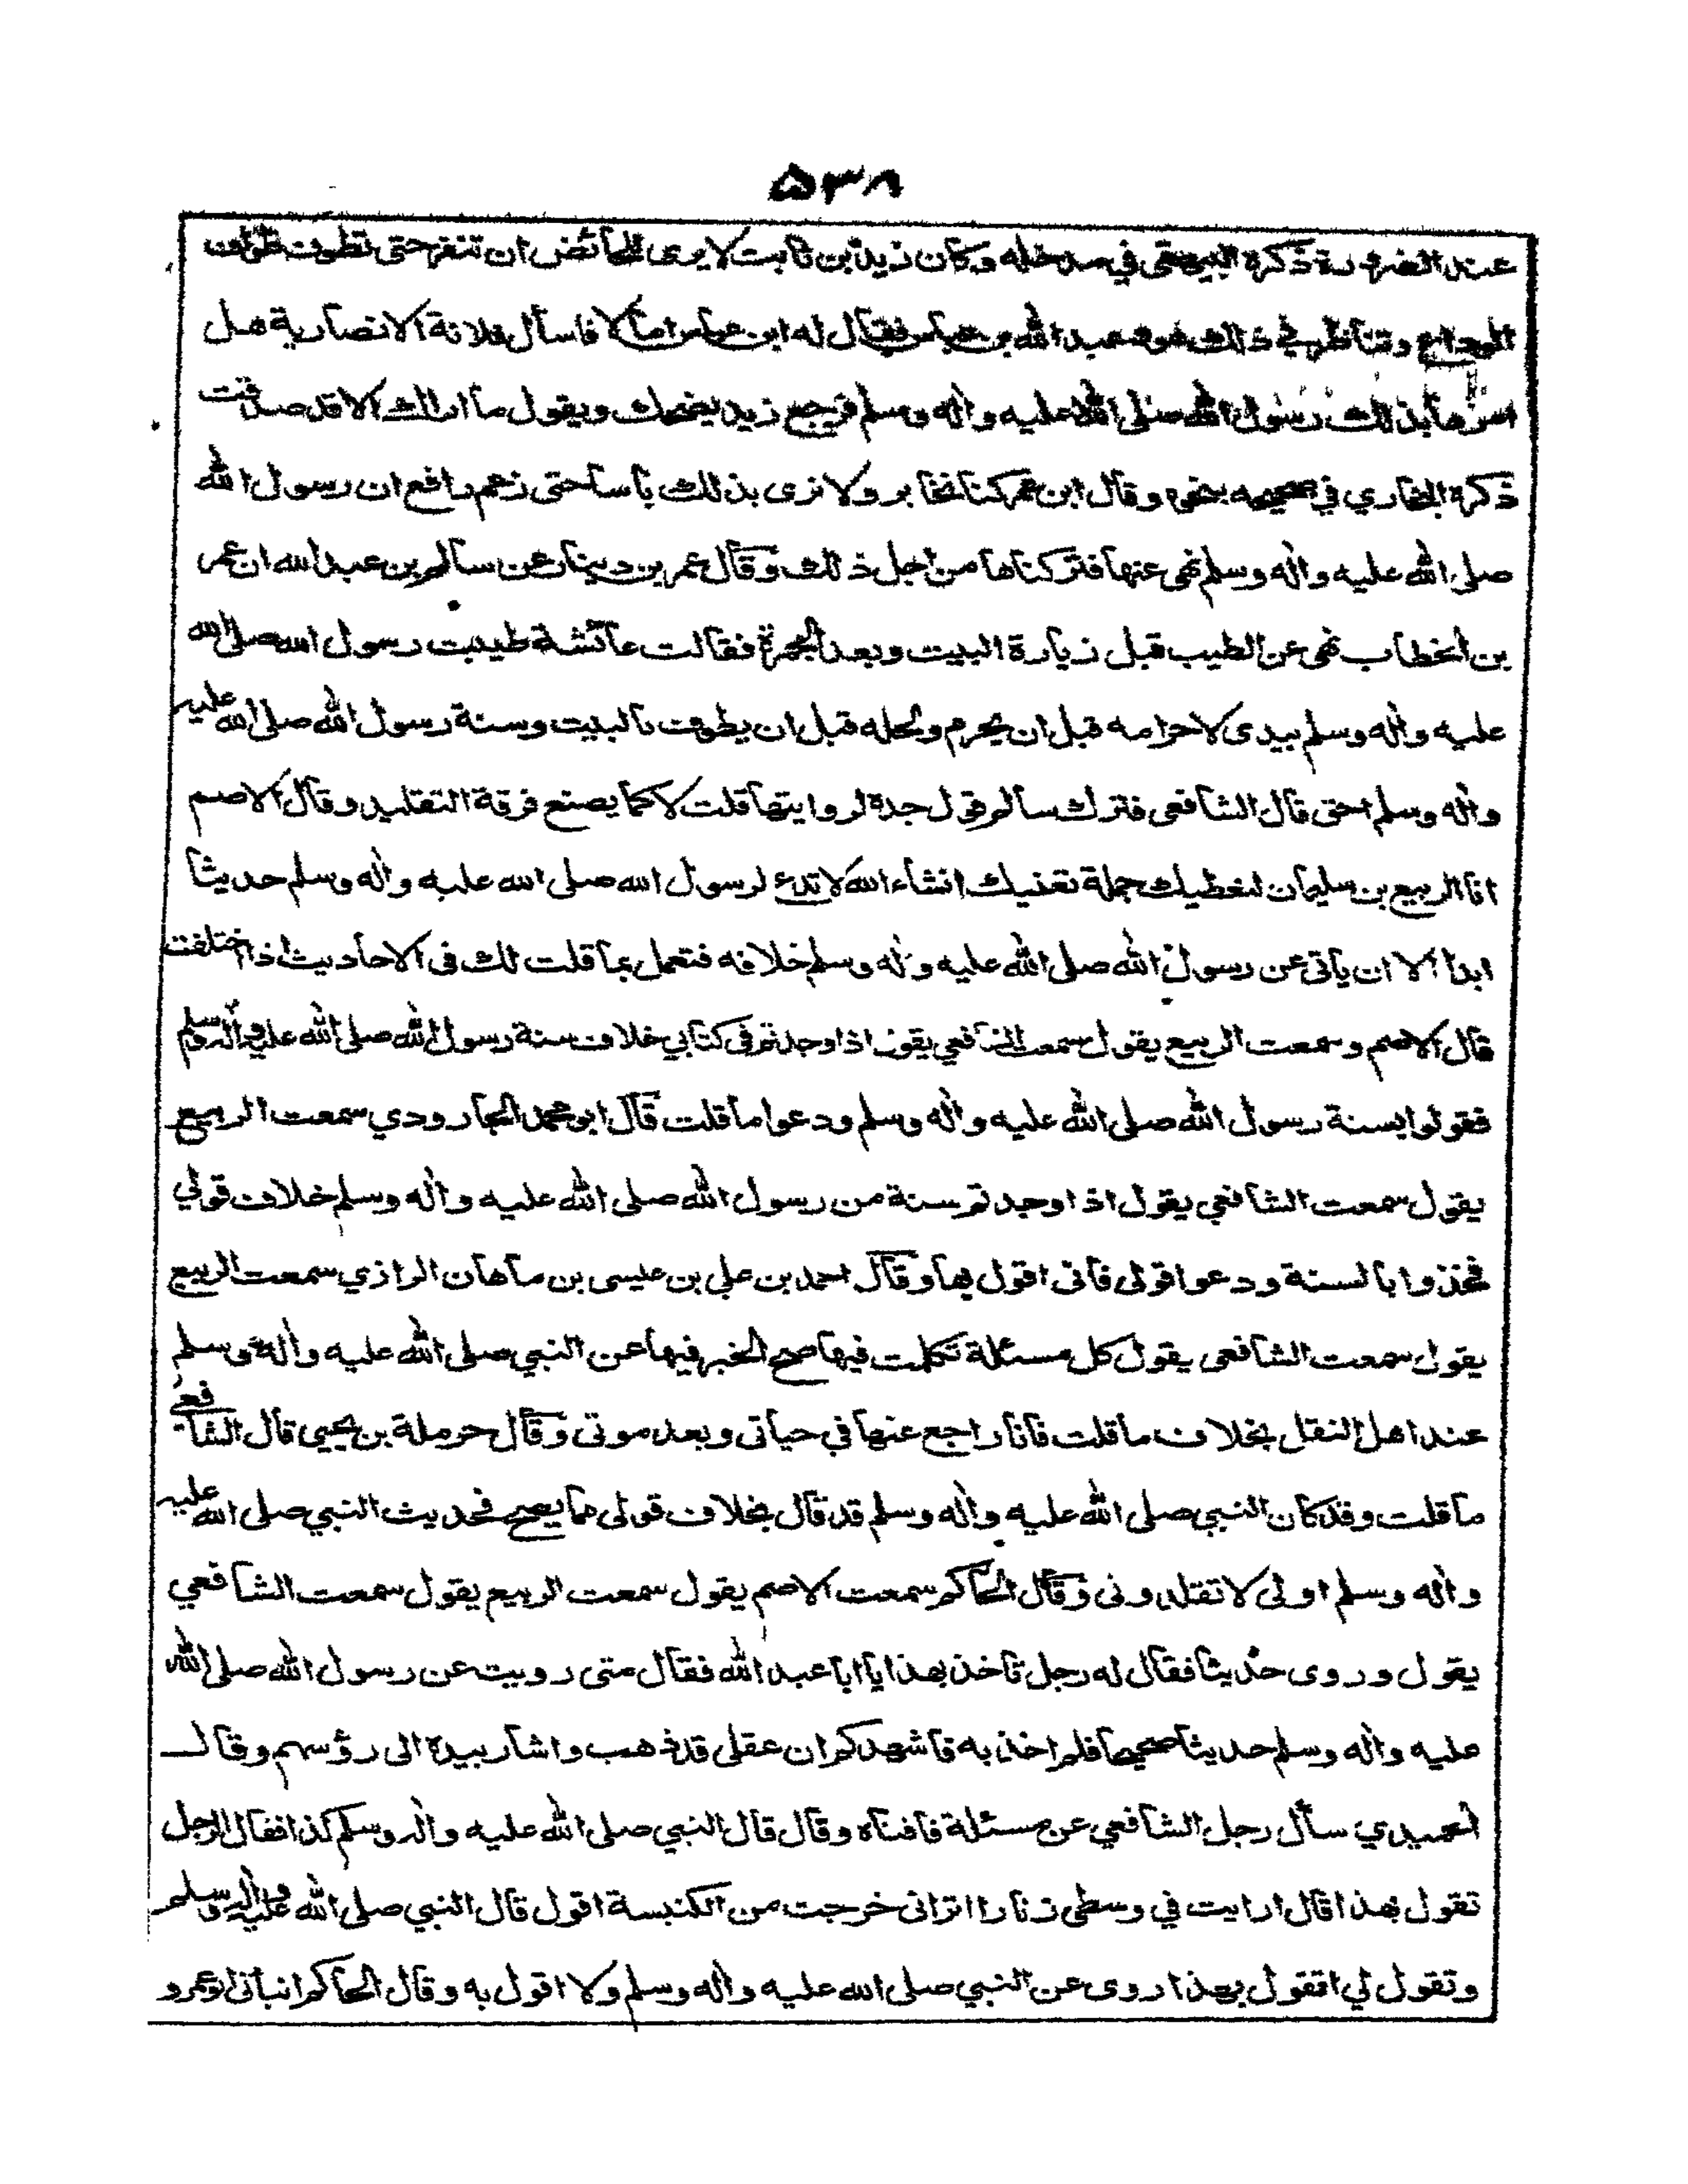 ۵۳۸
عند الضرورة ذكره البيهقي في مدخله وكان زيد بن ثابت لا يرى للحائض ان تنفر حتى تطوف طواف
الوداع وتناظر في ذلك هو وعبد الله بن عباس فقال له ابن عباس اما لا فاسأل فلانة الانصارية هل
امرها بذلك رسول الله صلى الله عليه واله وسلم فرجع زيد يضحك ويقول ما اراك الا قد صدقت
ذكره البخاري في صحيحه بنحوه وقال ابن عمر كنا نخابر ولا نرى بذلك بأسا حتى زعم رافع ان رسول الله
صلى الله عليه واله وسلم نهى عنها فتركناها من اجل ذلك وقال عمر بن دينار عن سالم بن عبد الله ان عمر
بن الخطاب نهى عن الطيب قبل زيارة البيت وبعد الجمرة فقالت عائشة طيبت رسول الله صلى الله
عليه واله وسلم بيدى لاحرامه قبل ان يحرم ولحله قبل ان يطوف بالبيت وسنة رسول الله صلى الله عليه
واله وسلم احق قال الشافعى فترك سالم قول جده لروايتها قلت لا كما يصنع فرقة التقليد وقال الاصم
انا الربيع بن سليمان لنعطيك جملة تغنيك انشاء الله لا تدع لرسول الله صلى الله عليه واله وسلم حديثا
ابدا الا ان يأتى عن رسول الله صلى الله عليه واله وسلم خلافه فتعمل بما قلت لك فى الاحاديث اذا اختلفت
قال الاصم وسمعت الربيع يقول سمعت الشافعي يقول اذا وجدتم فى كتابي خلاف سنة رسول الله صلى الله عليه واله وسلم
فقولوا بسنة رسول الله صلى الله عليه واله وسلم ودعوا ما قلت قال ابو محمد الجارودي سمعت الربيع
يقول سمعت الشافعي يقول اذا وجدتم سنة من رسول الله صلى الله عليه واله وسلم خلاف قولي
فخذوا بالسنة ودعوا قولى فانى اقول بها وقال احمد بن علي بن عيسى بن ماهان الرازي سمعت الربيع
يقول سمعت الشافعى يقول كل مسئلة تكلمت فيها صح الخبر فيها عن النبي صلى الله عليه واله وسلم
عند اهل النقل بخلاف ما قلت فانا راجع عنها في حياتى وبعد موتى وقال حرملة بن يحيى قال الشافعى
ما قلت وقد كان النبي صلى الله عليه واله وسلم قد قال بخلاف قولى مما يصح فحديث النبي صلى الله عليه
واله وسلم اولى لا تقلدونى وقال الحاكم سمعت الاصم يقول سمعت الربيع يقول سمعت الشافعي
يقول وروى حديثا فقال له رجل تأخذ بهذا يا ابا عبد الله فقال متى رويت عن رسول الله صلى الله
عليه واله وسلم حديثا صحيحا فلم اخذ به فاشهدكم ان عقلى قد ذهب واشار بيده الى رؤسهم وقال
الحميدي سأل رجل الشافعي عن مسئلة فافتاه وقال قال النبي صلى الله عليه واله وسلم كذا فقال الرجل
تقول بهذا قال ارايت في وسطى زنارا اترانى خرجت من الكنيسة اقول قال النبي صلى الله عليه واله وسلم
وتقول لي اتقول بهذا اروى عن النبي صلى الله عليه واله وسلم ولا اقول به وقال الحاكم انبأنى ابو عمرو